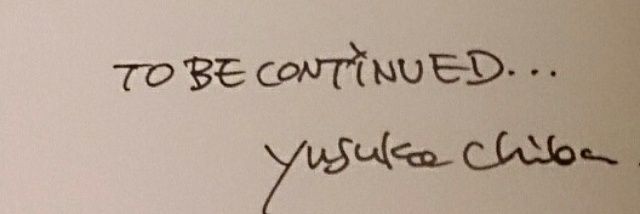 TO BE CONTINUED...
Yusuke Chiba